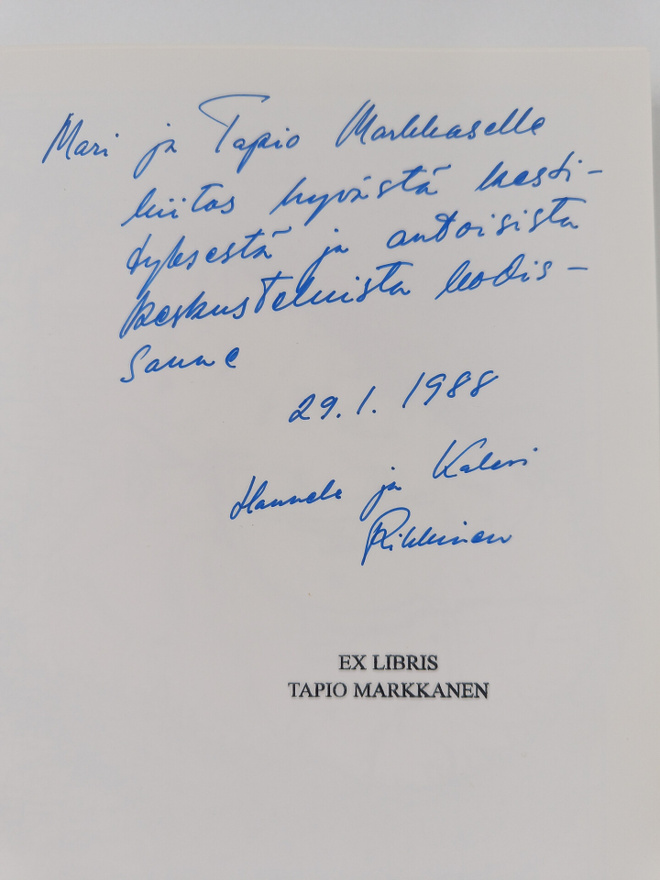 Mari ja Tapio Markkaselle
kiitos hyvästä kesti-
tyksestä ja antoisista
keskusteluista kodis-
sanne
29.1. 1988
Hannele ja Kalevi
Rikkinen
EX LIBRIS
TAPIO MARKKANEN